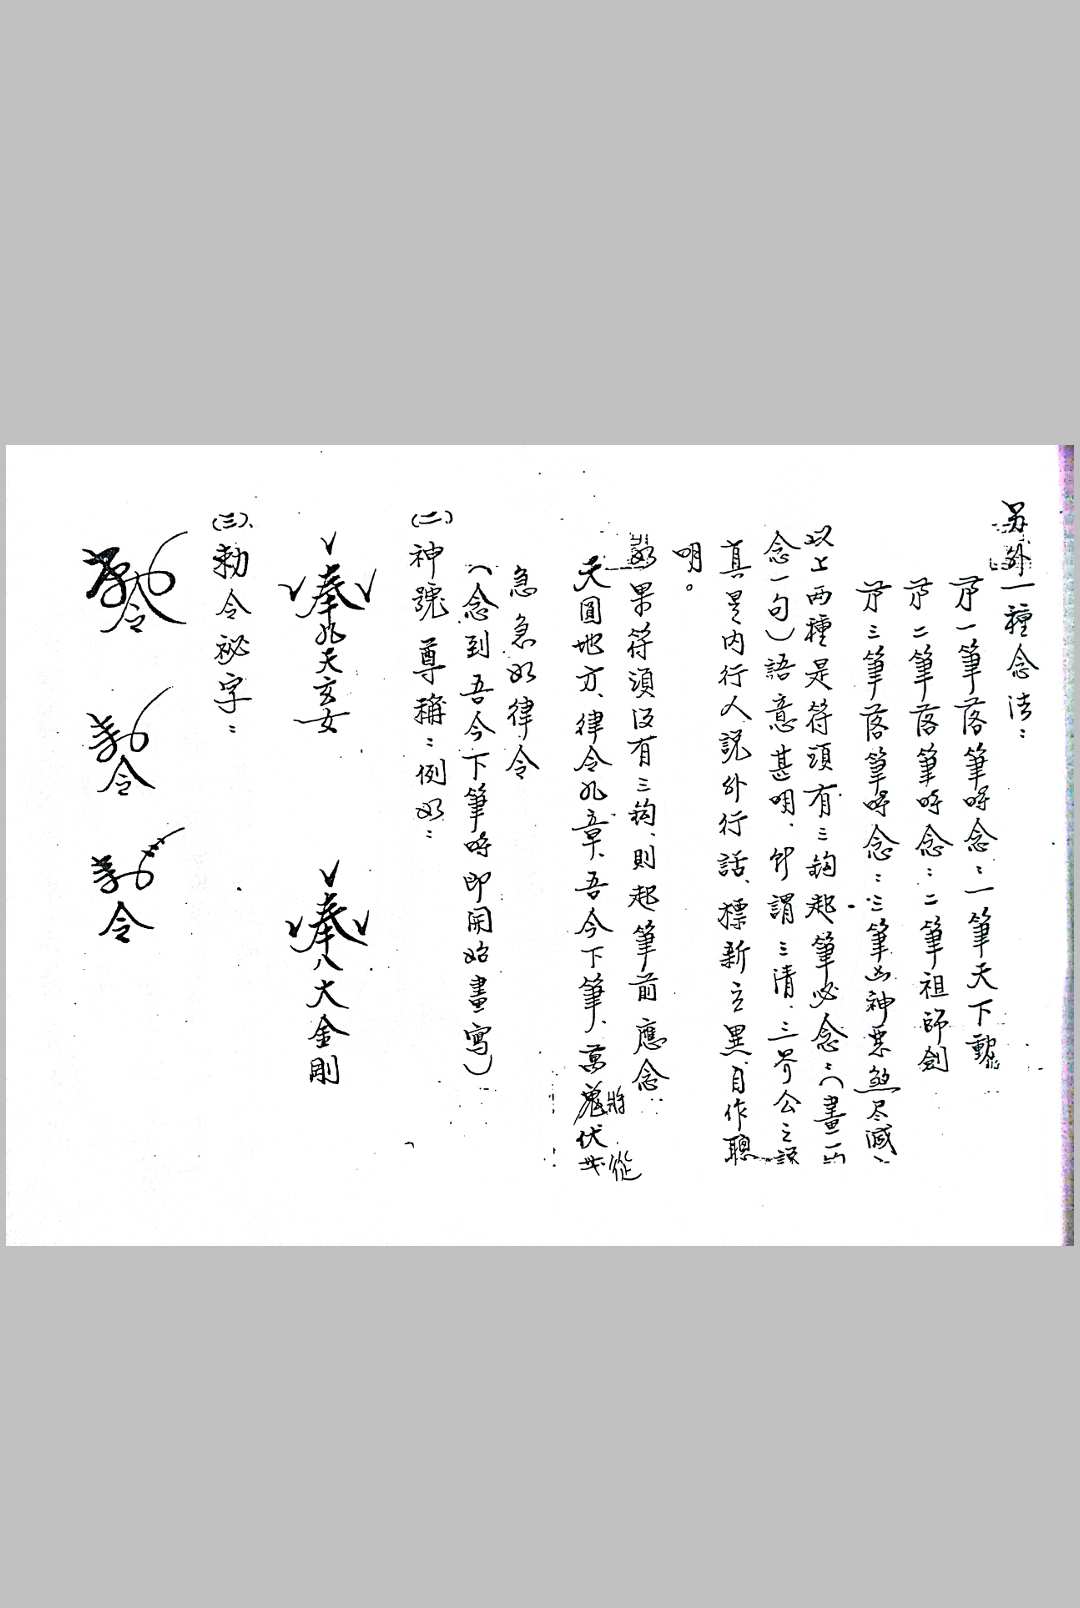 另外一種念法：
第一筆落筆時念：一筆天下動
第二筆落筆時念：二筆祖師劍
第三筆落筆時念：三筆凶神惡煞尽滅、
以上兩種是符頭有三鈎起筆必念：（畫一
念一句）語意甚明、何謂三清、三界公之說
真是内行人說外行話、標新立異、自作聰
明。
如果符頭没有三鈎、則起筆前應念
天圓地方、律令九章、吾今下筆、萬鬼伏
將 從
急急如律令
（念到吾今下筆時即開始畫寫）
（二）神號尊稱：例如：
奉九天玄女
奉八大金剛
（三）、勅令祕字：
令
令
令